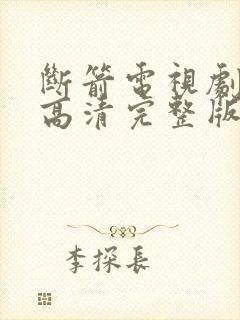 斷箭電視劇
高清完整版
李探長